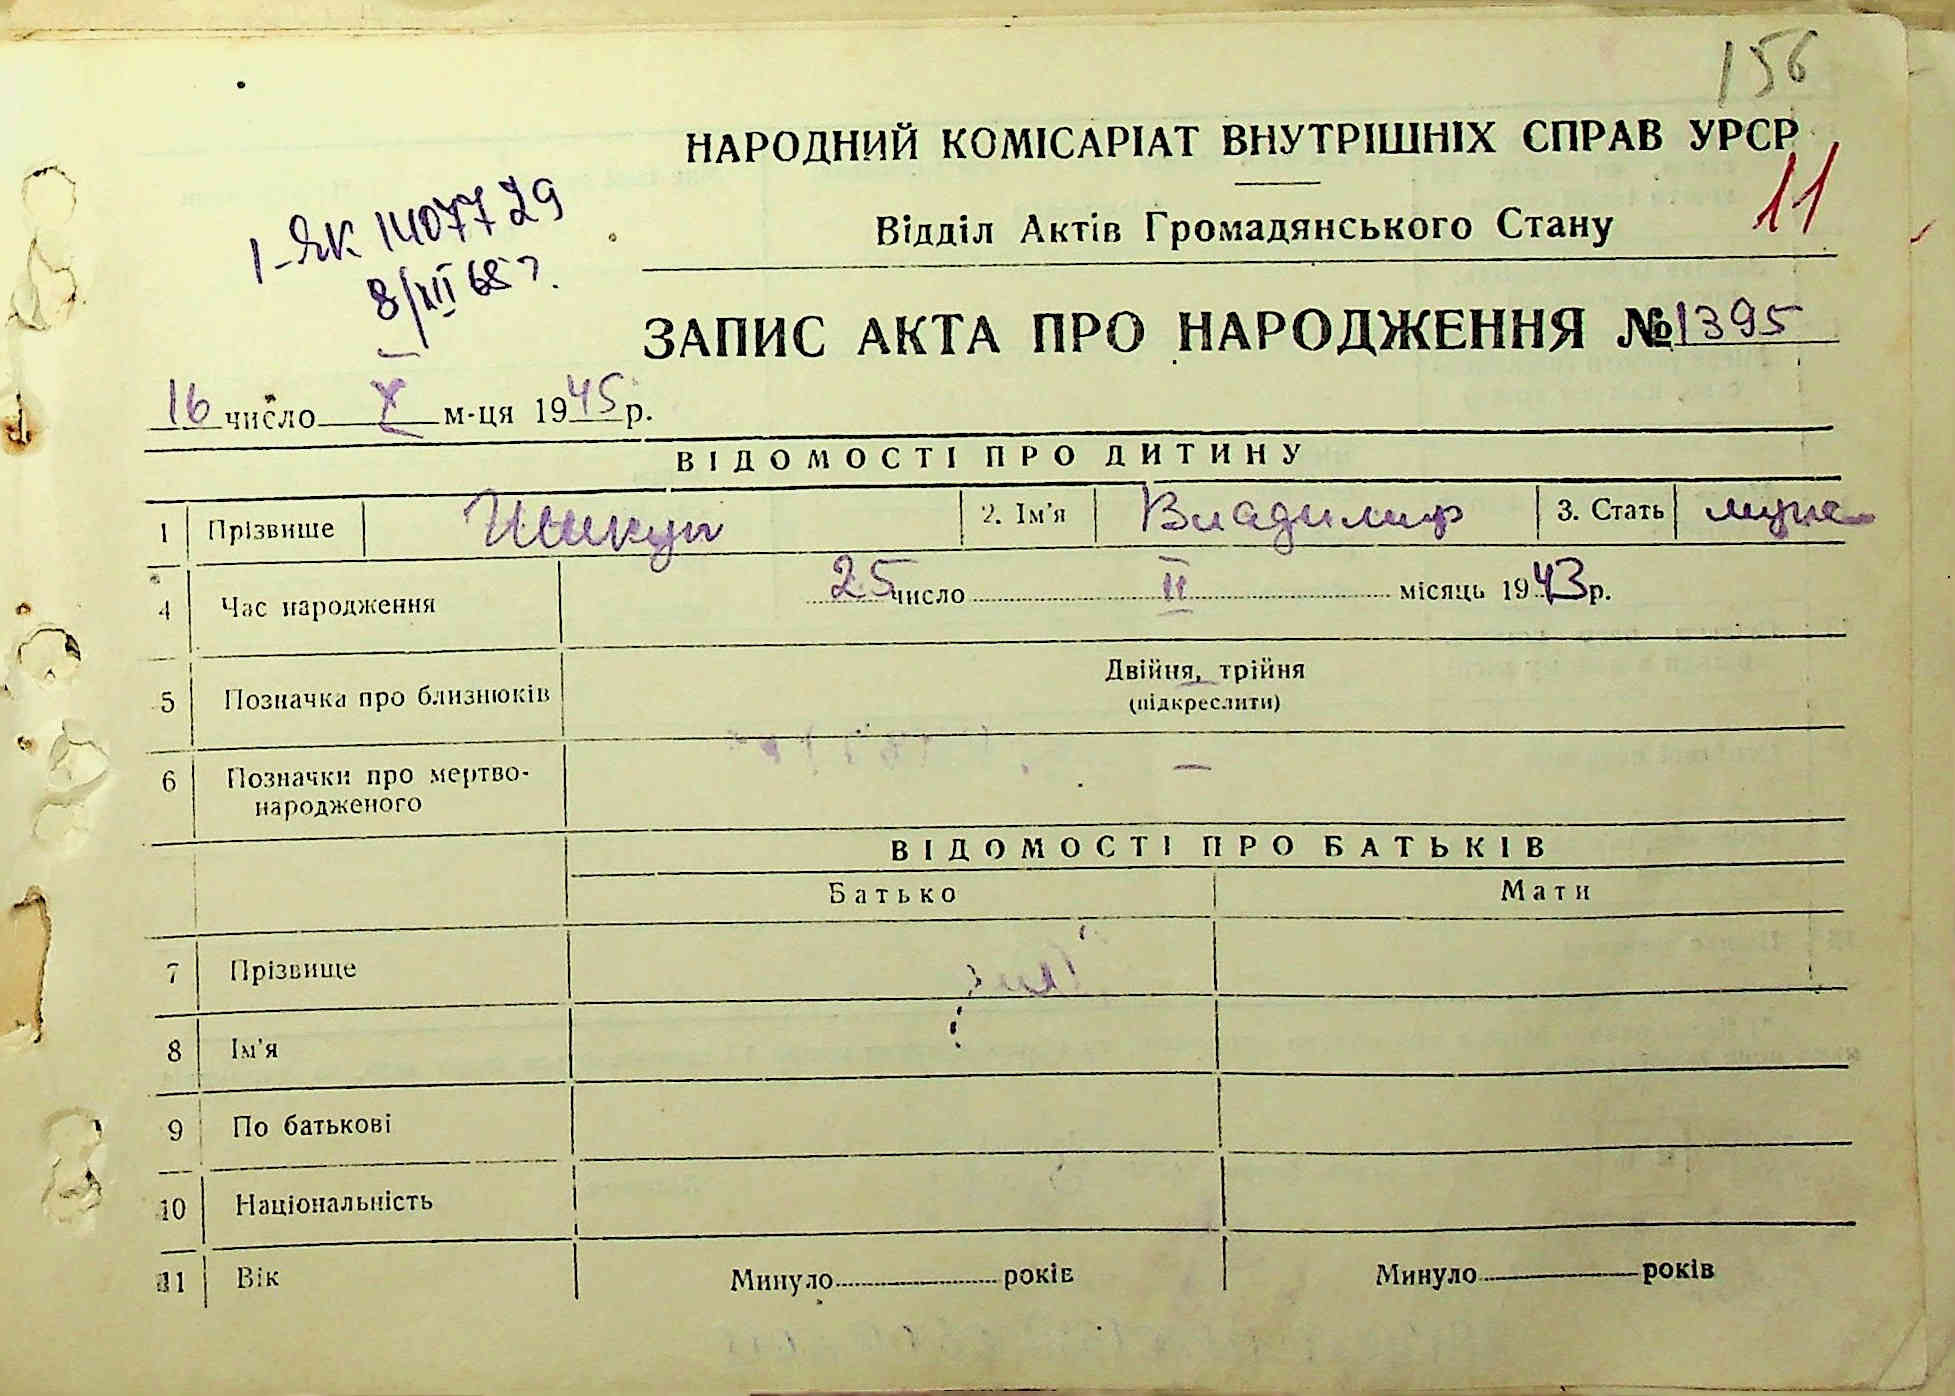 156
НАРОДНИЙ КОМІСАРІАТ ВНУТРІШНІХ СПРАВ УРСР
11
Відділ Актів Громадянського Стану
I-ЯК 1407729
8/XII 68 г.
ЗАПИС АКТА ПРО НАРОДЖЕННЯ № 1395
16 число X м-ця 1945 р.
ВІДОМОСТІ ПРО ДИТИНУ
1 Прізвище 2. Ім'я Владимир 3. Стать муж
4 Час народження 25 число II місяць 1943 р.
5 Позначка про близнюків Двійня, трійня
(підкреслити)
6 Позначки про мертво-
народженого —
ВІДОМОСТІ ПРО БАТЬКІВ
Батько Мати
7 Прізвище
8 Ім'я
9 По батькові
10 Національність
11 Вік Минуло років Минуло років